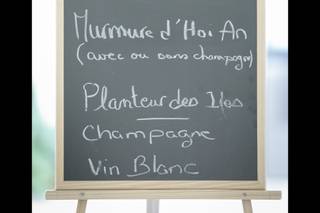 Murmure d'Hoi An
(avec ou sans champagne)
Planteur des Iles
Champagne
Vin Blanc